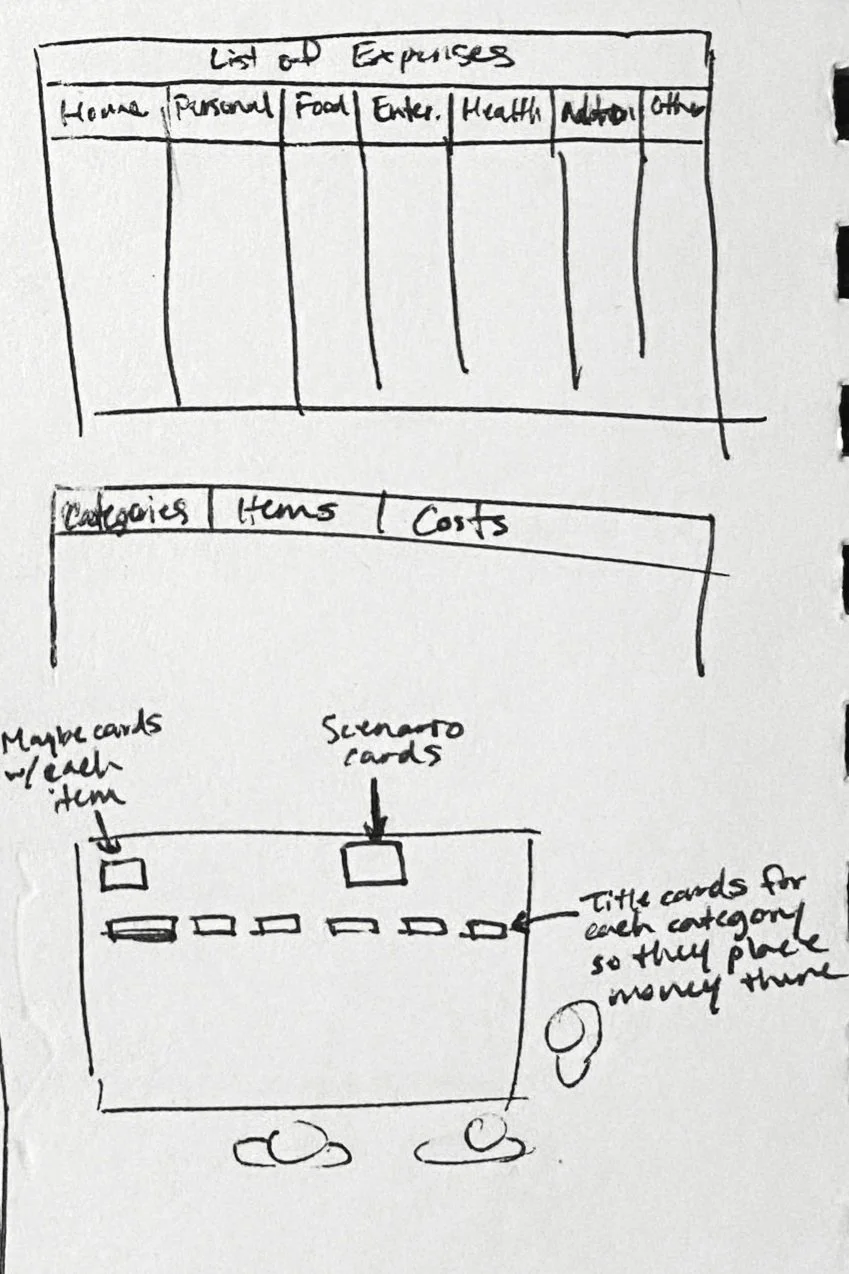 List of Expenses
Home Personal Food Enter. Health Other
Categories Items Costs
Maybe cards
w/ each
item
Scenario
cards
Title cards for
each category
so they place
money there